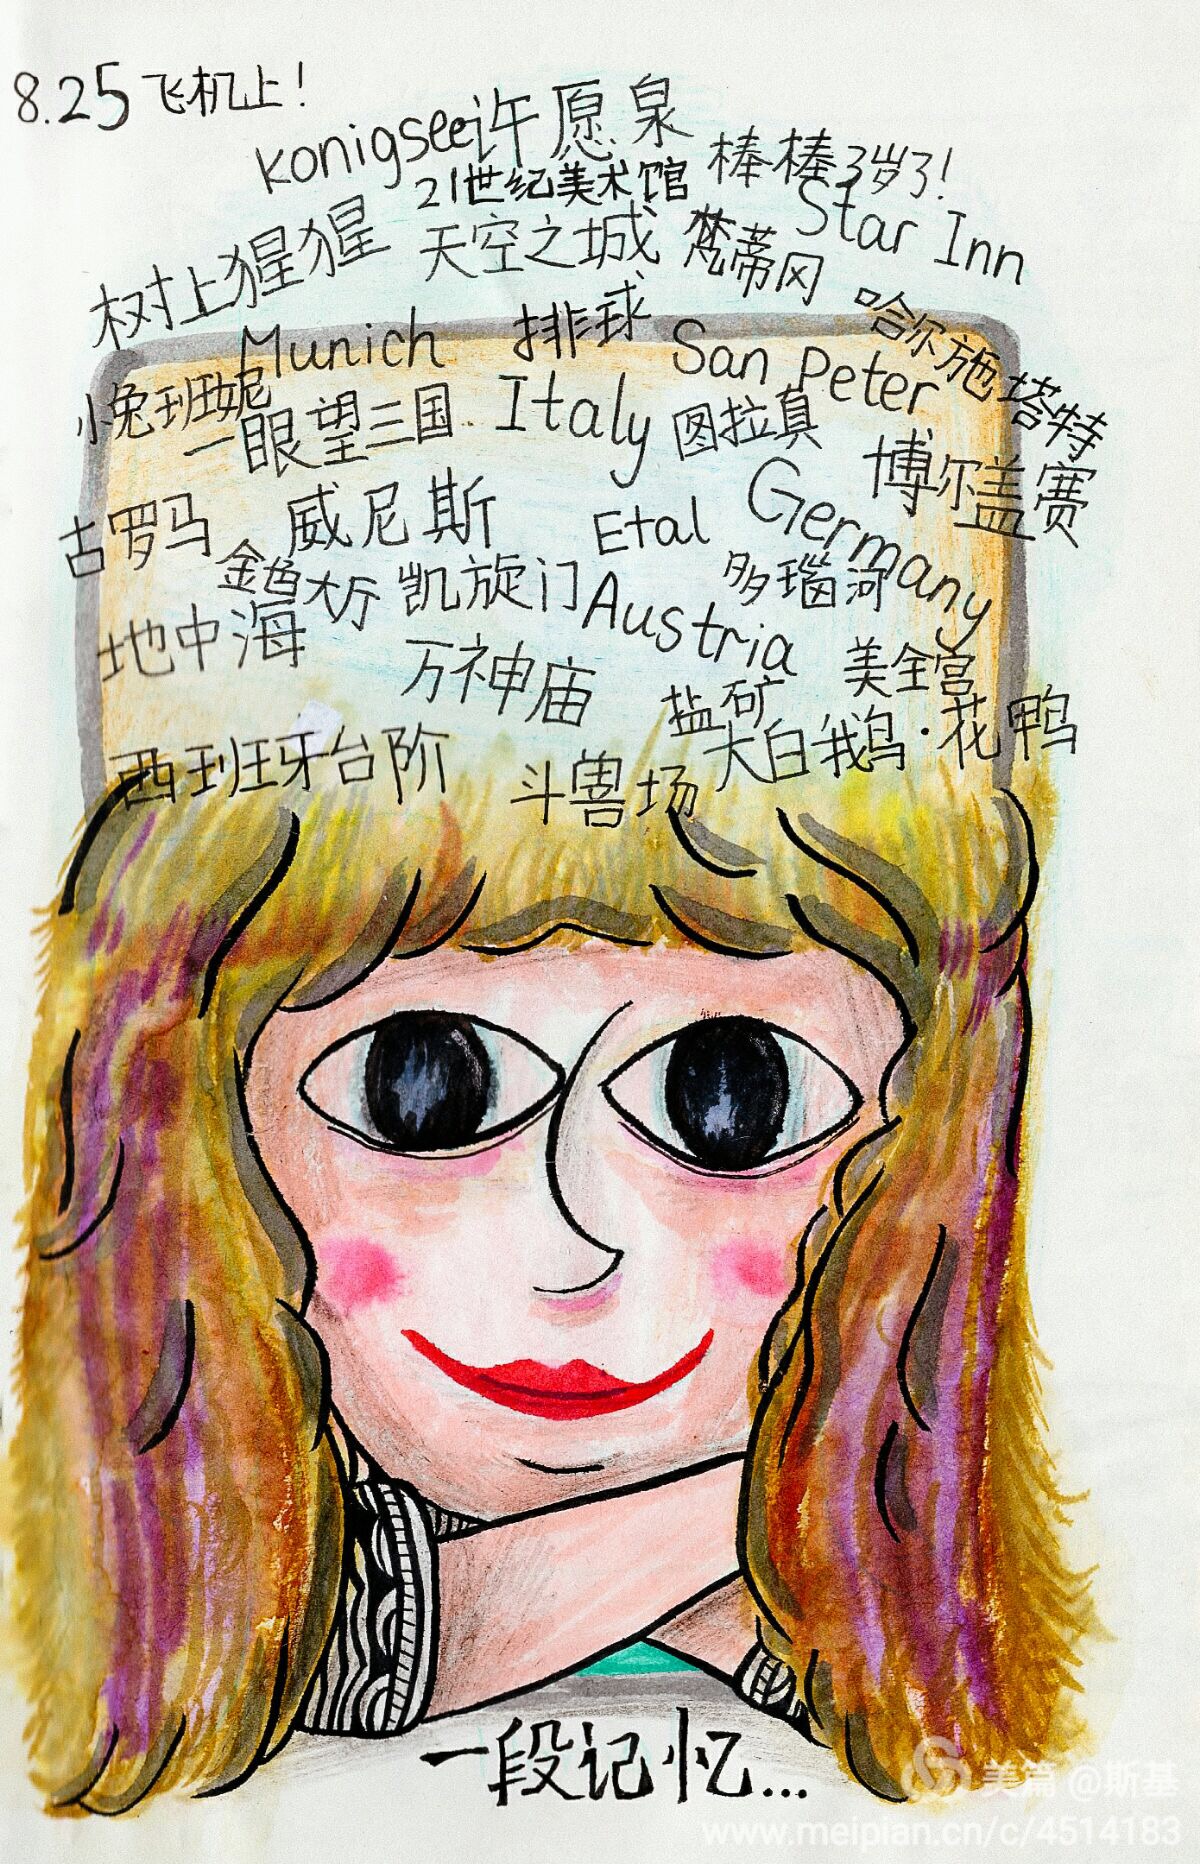 8.25 飞机上！
konigsee许愿泉
棒棒3岁了！
21世纪美术馆
Star Inn
树上猩猩
天空之城
梵蒂冈
哈尔施塔特
Munich
排球
San Peter
小兔班妮
一眼望三国..
Italy
图拉真
博尔盖赛
古罗马
威尼斯
Etal
Germany
金色大厅
凯旋门
多瑙河
地中海
Austria
万神庙
美全宫
盐矿
大白鹅·花鸭
西班牙台阶
斗兽场
一段记忆...
美篇 @斯基
www.meipian.cn/c/4514183